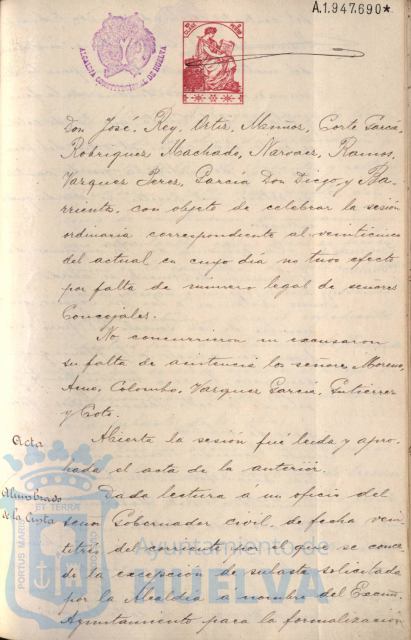 A.1.947.690*
ALCALDIA CONSTITUCIONAL DE HUELVA
Don José, Rey, Ortiz, Muñoz, Corte García,
Rodriguez Machado, Narvaez, Ramos,
Vazquez Perez, García Don Diego, y Ba-
rriento, con objeto de celebrar la sesión
ordinaria correspondiente al veinticinco
del actual en cuyo dia no tuvo efecto
por falta de número legal de señores
Concejales.
No concurrieron ni excusaron
su falta de asistencia los señores Moreno,
Colombo, Vazquez García, Gutierrez
y Soto.
Acta
Abierta la sesión fué leida y apro-
bada el acta de la anterior.
Alumbrado
de la Cinta
Dada lectura á un oficio del
señor Gobernador civil, de fecha vein-
titrés del corriente por el que se conce-
de la excepción de subasta solicitada
por la Alcaldia á nombre del Excmo.
Ayuntamiento para la formalización
PORTUS MARIS ET TERRAE CUSTODIAE
Ayuntamiento de
HUELVA